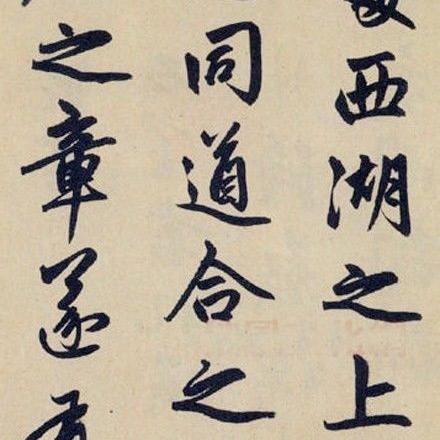 西湖之上
同道合之
之章遂